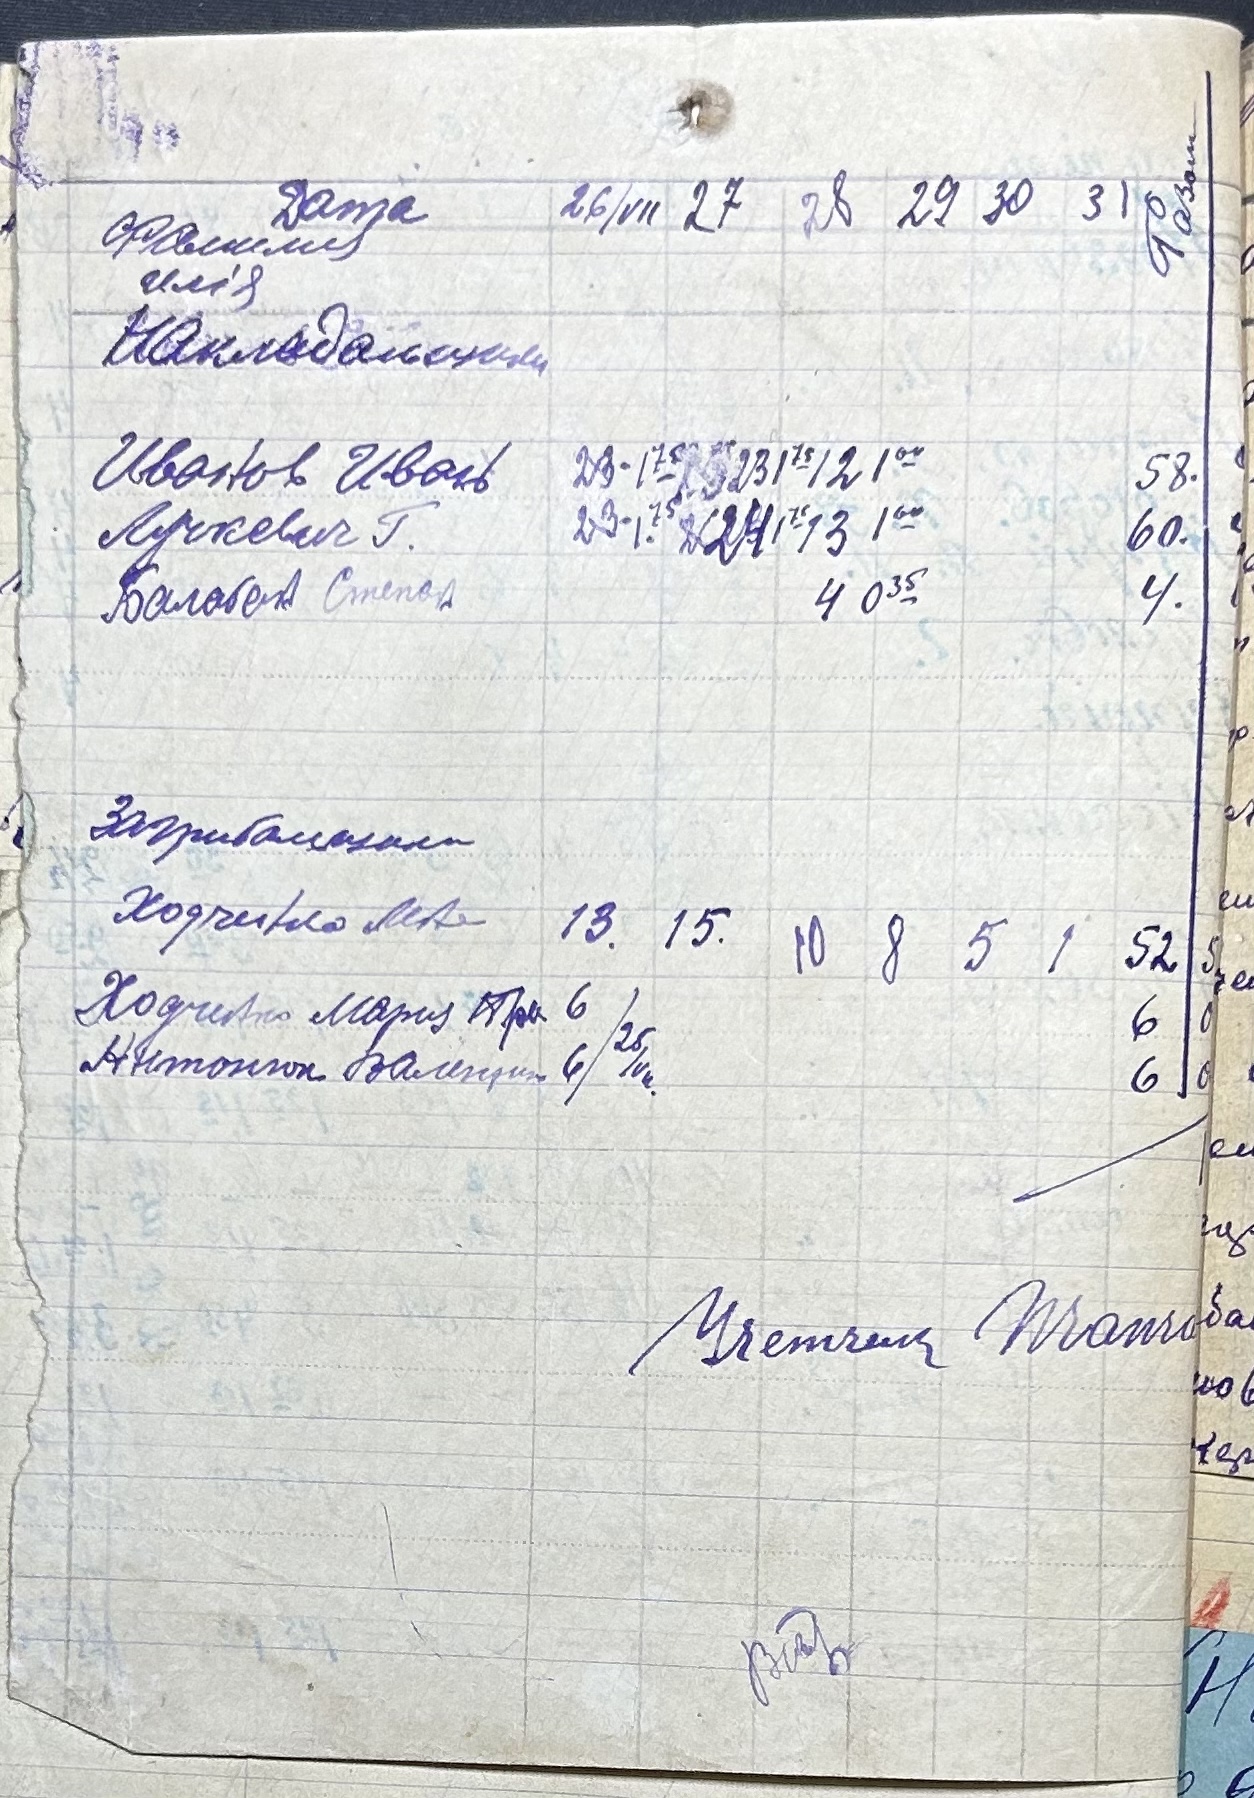 Дата 26/VII 27 28 29 30 31 Разом
Фамилия
имія
Накладальщики
Иванов Иван 23-1 75 23 1 75 12 1 00 58.
Лучкевич Г. 23-1. 75 24 1 75 13 1 00 60.
Балабан Степан 4 0 35 4.
Загрибальщики
Ходченко 13. 15. 10 8 5 1 52
Ходченко Мария 6 6
Антонюк Валентин 6 / 25/VII. 6
Учетчик